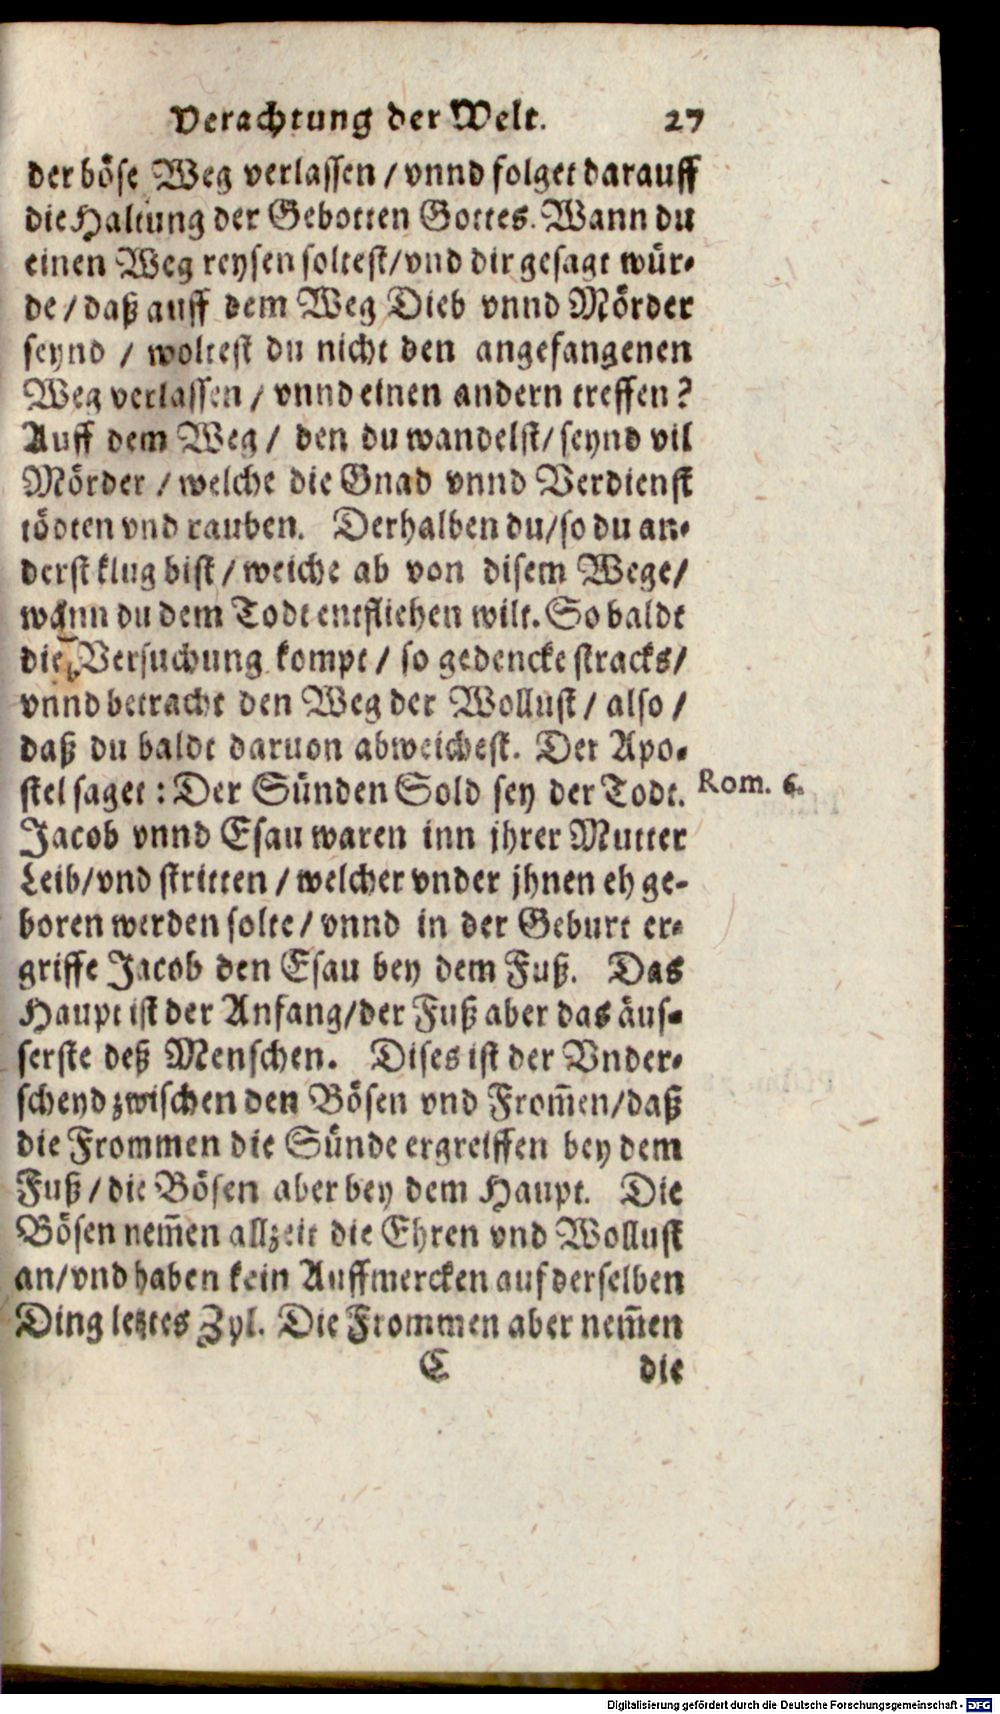 Verachtung der Welt. 27
der böse Weg verlassen / vnnd folget darauff
die Haltung der Gebotten Gottes. Wann du
einen Weg reysen soltest/vnd dir gesagt wür-
de / daß auff dem Weg Dieb vnnd Mörder
seynd / woltest du nicht den angefangenen
Weg verlassen / vnnd einen andern treffen?
Auff dem Weg / den du wandelst/ seynd vil
Mörder / welche die Gnad vnnd Verdienst
tödten vnd rauben. Derhalben du/so du an-
derst klug bist / weiche ab von disem Wege/
wann du dem Todt entfliehen wilt. So baldt
die Versuchung kompt / so gedencke stracks/
vnnd betracht den Weg der Wollust / also /
daß du baldt daruon abweichest. Der Apo-
stel saget : Der Sünden Sold sey der Todt. Rom. 6.
Jacob vnnd Esau waren inn jhrer Mutter
Leib/vnd stritten / welcher vnder jhnen eh ge-
boren werden solte/ vnnd in der Geburt er-
griffe Jacob den Esau bey dem Fuß. Das
Haupt ist der Anfang/der Fuß aber das äus-
serste deß Menschen. Dises ist der Vnder-
scheyd zwischen den Bösen vnd From̃en/daß
die Frommen die Sünde ergreiffen bey dem
Fuß / die Bösen aber bey dem Haupt. Die
Bösen nem̃en allzeit die Ehren vnd Wollust
an/vnd haben kein Auffmercken auf derselben
Ding letztes Zyl. Die Frommen aber nem̃en
C die
Digitalisierung gefördert durch die Deutsche Forschungsgemeinschaft - DFG